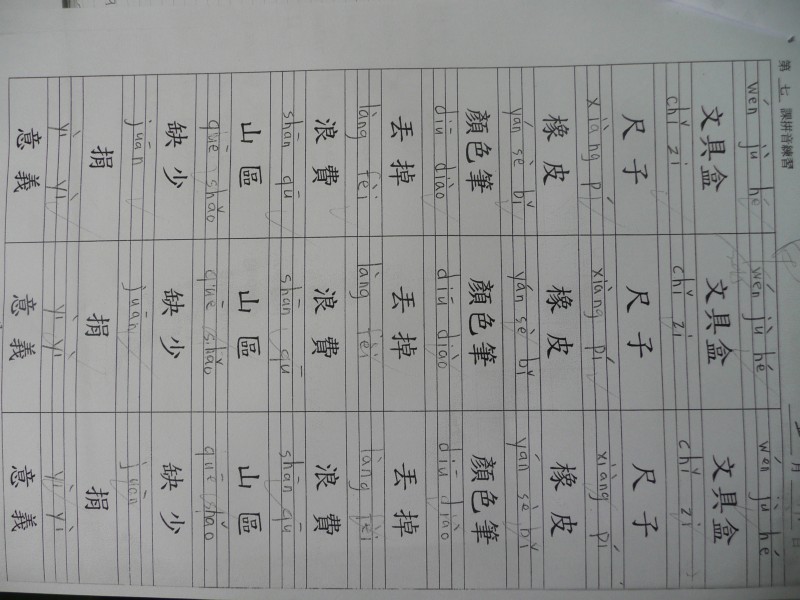 第 七 課拼音練習 月 日
wén jù hé wén jù hé wén jù hé
文具盒 文具盒 文具盒
chǐ zi chǐ zi chǐ zi
尺子 尺子 尺子
xiàng pí xiàng pí xiàng pí
橡皮 橡皮 橡皮
yán sè bǐ yán sè bǐ yán sè bǐ
顏色筆 顏色筆 顏色筆
diū diào diū diào diū diào
丟掉 丟掉 丟掉
làng fèi làng fèi làng fèi
浪費 浪費 浪費
shān qū shān qū shān qū
山區 山區 山區
quē shǎo quē shǎo quē shǎo
缺少 缺少 缺少
juān juān juān
捐 捐 捐
yì yì yì yì yì yì
意義 意義 意義